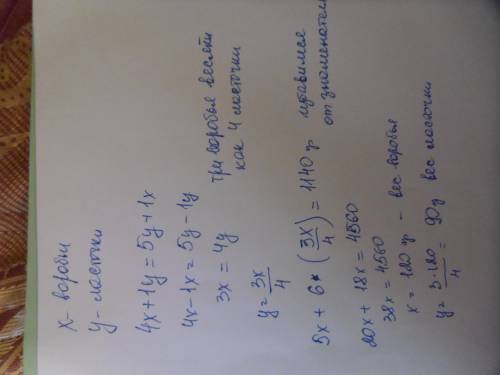 x - воробьи
y - ласточки
4x + 1y = 5y + 1x
4x - 1x = 5y - 1y
3x = 4y три воробья весят
как 4 ласточки
y = 3x/4
5x + 6 * (3x/4) = 1140 г избавимся
от знаменателя
20x + 18x = 4560
38x = 4560
x = 120 г - вес воробья
y = 3·120/4 = 90 г вес ласточки